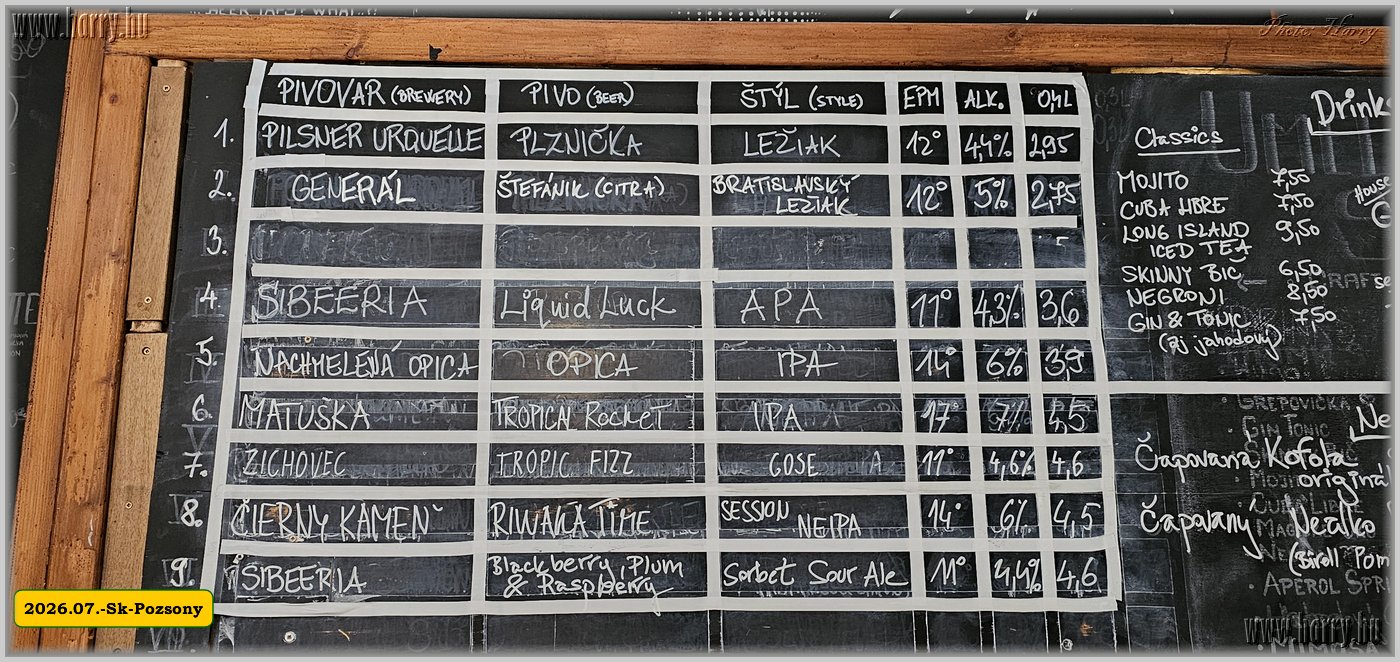 www.harry.hu
Photo: Harry
PIVOVAR (BREWERY) PIVO (BEER) ŠTÝL (STYLE) EPM ALK. 0,4L
1. PILSNER URQUELLE PLZNIČKA LEŽIAK 12° 4,4% 2,95
2. GENERÁL ŠTEFÁNIK (CITRA) BRATISLAVSKÝ LEŽIAK 12° 5% 2,75
3.
4. SIBEERIA Liquid Luck APA 11° 4,3% 3,6
5. NACHMELENÁ OPICA OPICA IPA 14° 6% 3,9
6. MATUŠKA TROPICAL ROCKET IPA 17° 7% 4,5
7. ZICHOVEC TROPIC FIZZ GOSE 11° 4,6% 4,6
8. ČIERNY KAMEŇ RIWAKA TIME SESSION NEIPA 14° 6% 4,5
9. SIBEERIA Blackberry, Plum & Raspberry Sorbet Sour Ale 11° 4,4% 4,6
Drink
Classics
MOJITO 7,50
CUBA LIBRE 7,50
LONG ISLAND ICED TEA 9,50
SKINNY BIC 6,50
NEGRONI 8,50
GIN & TONIC 7,50
(aj jahodový)
HOUSE
Ne
Čapovaná Kofola
originá
Čapovaný Nealko
(Birell Pom
APEROL SPR
2026.07.-Sk-Pozsony
www.harry.hu